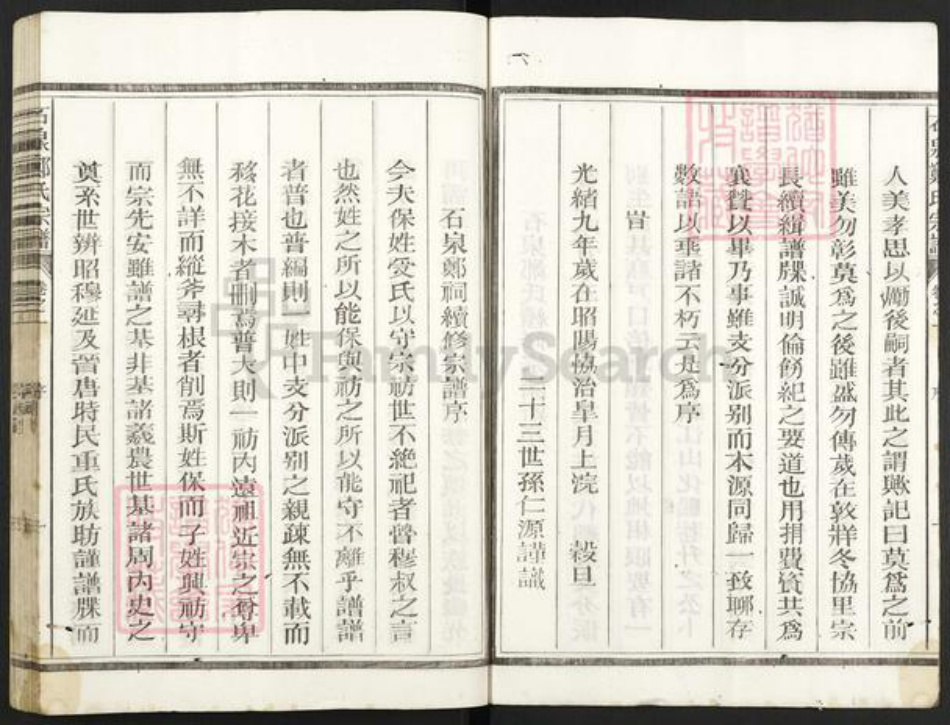 人美孝思以勵後嗣者其此之謂歟記曰莫為之前
雖美勿彰莫為之後雖盛勿傳歲在敦牂冬協里宗
長續緝譜牒誠明倫飭紀之要道也用捐費資共為
襄贊以畢乃事雖支分派別而本源同歸一致聊存
數語以垂諸不朽云是為序
旹
光緒九年歲在昭陽協洽皐月上浣 榖旦
二十三世孫仁源謹識
石泉鄭祠續修宗譜序
今夫保姓受氏以守宗祊世不絕祀者晉穆叔之言
也然姓之所以能保與祊之所以能守不離乎譜譜
者普也普編則一姓中支分派別之親疎無不載而
移花接木者刪焉普大則一祊內遠祖近宗之尊卑
無不詳而縱斧尋根者削焉斯姓保而子姓興祊守
而宗先安雖譜之基非基諸羲農世基諸周內史之
奠系世辨昭穆延及晉唐時民重氏族助謹譜牒而
石泉鄭氏宗譜
FamilySearch